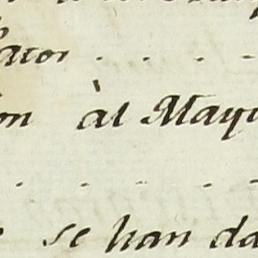 ator . . . .
on àl May
. . . .
se han da